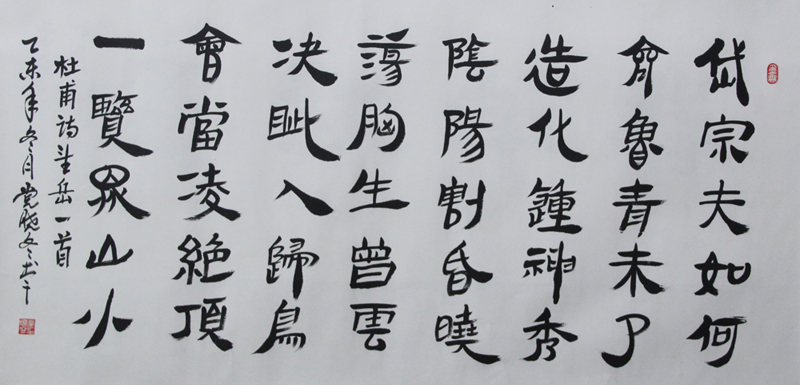 岱宗夫如何
齊魯青未了
造化鍾神秀
陰陽割昏曉
蕩胸生曾雲
決眦入歸鳥
會當凌絕頂
一覽眾山小
杜甫詩望岳一首
乙未年冬月党晓冬书于